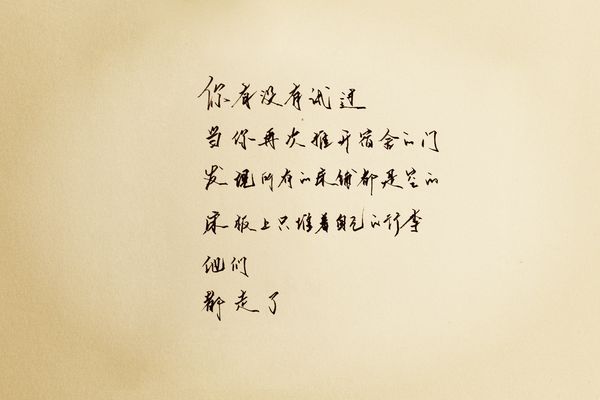 你有没有试过
当你再次推开宿舍的门
发现所有的床铺都是空的
床板上只堆着自己的行李
他们
都走了